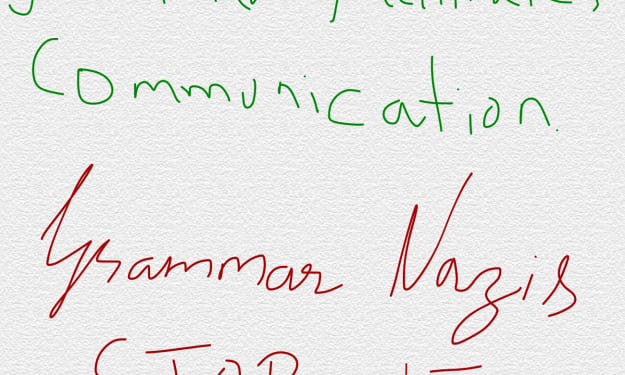 Communication.
Grammar Nazis
STOP IT